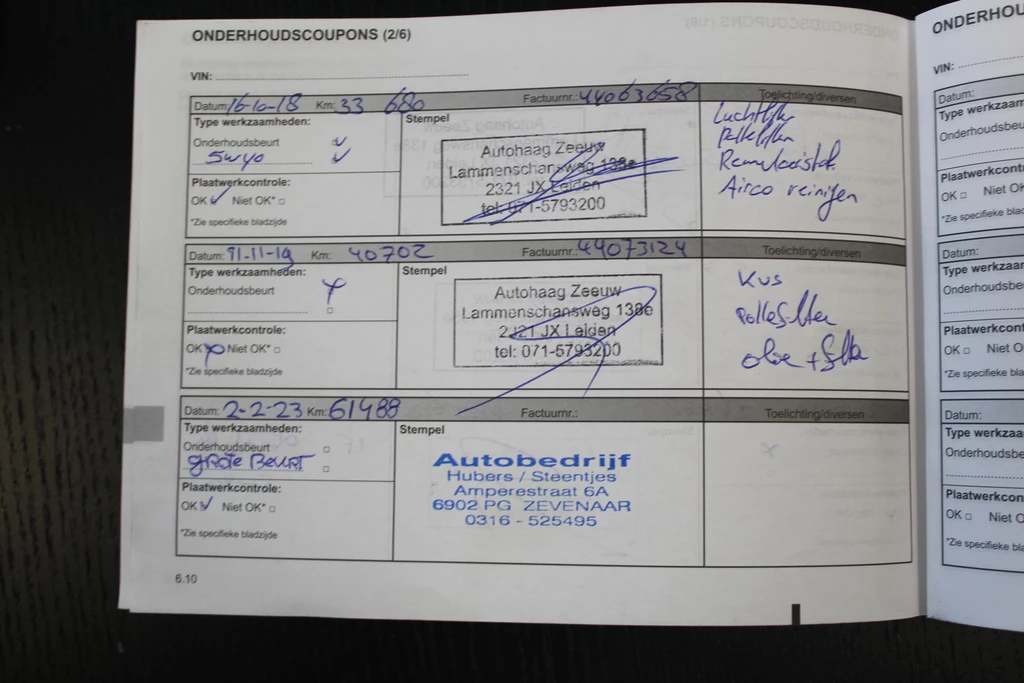 ONDERHOUDSCOUPONS (2/6)
VIN:
Datum: 16-10-18 Km: 33 680 Factuurnr.: 44063658 Toelichting/diversen
Type werkzaamheden:
Stempel
Onderhoudsbeurt
Plaatwerkcontrole:
OK Niet OK*
*Zie specifieke bladzijde
Autohaag Zeeuw
Lammenschansweg 138e
2321 JX Leiden
tel: 071-5793200
Luchtfilter
Pollefilter
Remvloeistof
Airco reinigen
Datum: 11-11-19 Km: 40702 Factuurnr.: 44073124 Toelichting/diversen
Type werkzaamheden:
Stempel
Onderhoudsbeurt
Plaatwerkcontrole:
OK Niet OK*
*Zie specifieke bladzijde
Autohaag Zeeuw
Lammenschansweg 138e
2321 JX Leiden
tel: 071-5793200
Pollefilter
olie + filter
Datum: 2-2-23 Km: 61488 Factuurnr.: Toelichting/diversen
Type werkzaamheden:
Stempel
Onderhoudsbeurt
GROTE BEURT
Plaatwerkcontrole:
OK Niet OK*
*Zie specifieke bladzijde
Autobedrijf
Hubers / Steentjes
Amperestraat 6A
6902 PG ZEVENAAR
0316 - 525495
6.10
ONDERHOU
VIN:
Datum:
Type werkzaam
Onderhoudsbe
Plaatwerkcontro
OK Niet OK
*Zie specifieke bla
Datum:
Type werkzaam
Onderhoudsbe
Plaatwerkcontro
OK Niet O
*Zie specifieke bla
Datum:
Type werkzaa
Onderhoudsb
Plaatwerkcon
OK Niet O
*Zie specifieke b